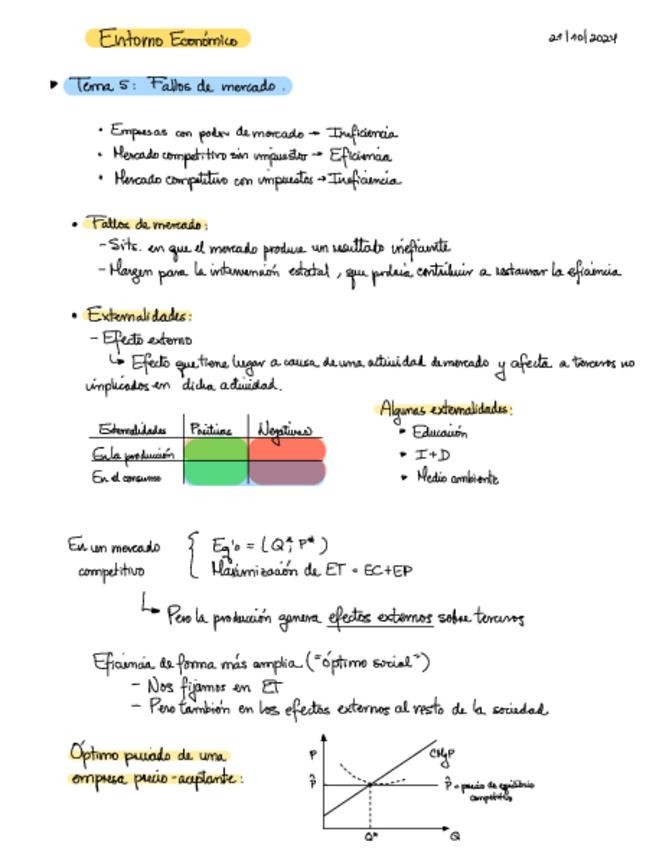 Entorno Económico
21/10/2024
Tema 5: Fallos de mercado.
• Empresas con poder de mercado → Ineficiencia
• Mercado competitivo sin impuestos → Eficiencia
• Mercado competitivo con impuestos → Ineficiencia
• Fallos de mercado:
- Sits. en que el mercado produce un resultado ineficiente
- Margen para la intervención estatal, que podría contribuir a restaurar la eficiencia
• Externalidades:
- Efecto externo
↳ Efecto que tiene lugar a causa de una actividad de mercado y afecta a terceros no
implicados en dicha actividad.
Externalidades Positivas Negativas
En la producción
En el consumo
Algunas externalidades:
• Educación
• I+D
• Medio ambiente
En un mercado
competitivo
Eq'o = (Q*, P*)
Maximización de ET = EC+EP
↳ Pero la producción genera efectos externos sobre terceros
Eficiencia de forma más amplia ("óptimo social")
- Nos fijamos en ET
- Pero también en los efectos externos al resto de la sociedad
Óptimo privado de una
empresa precio-aceptante:
P
CMgP
P̂
P̂ = precio de equilibrio
competitivo
Q*
Q